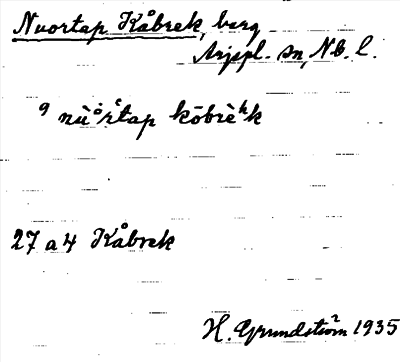 Nuortap Kåbrek, berg
Arjepl. sn, Nb. l.
9 nù̀årtap kōbrèʰk
27 a 4 Kåbrek
H. Grundström 1935